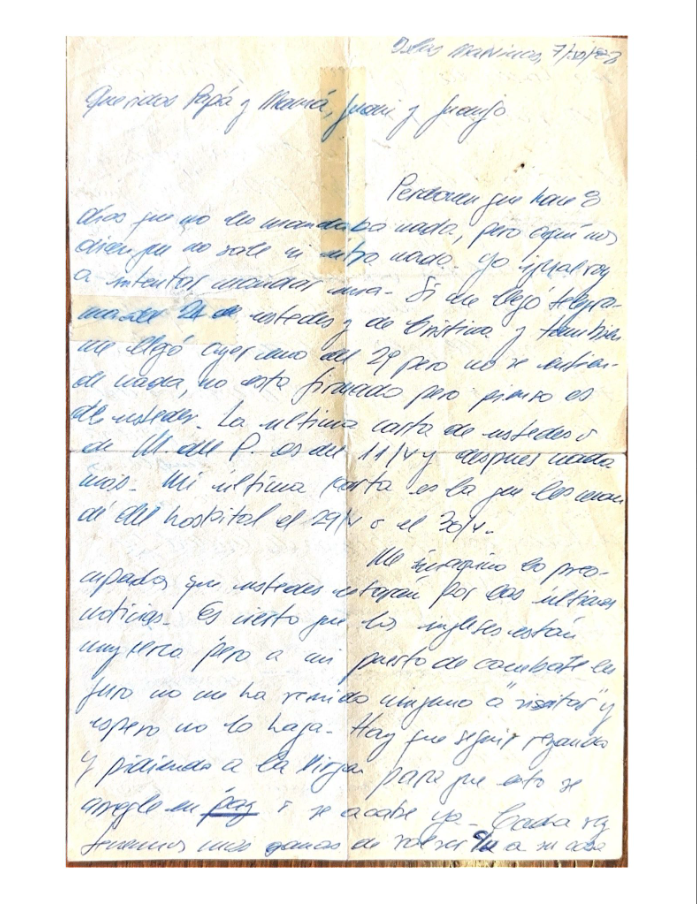 Islas Malvinas, 7/VI/82
Queridos Papá y Mamá, Juani y Juanjo
Perdonen que hace 8
días que no les mandaba nada, pero aquí nos
dicen que no sale ni entra nada yo igual voy
a intentar mandar una. Si me llegó telegra-
ma del 21 de ustedes y de Cristina y también
me llegó ayer uno del 29 pero no se entien-
de nada, no está firmado pero pienso es
de ustedes. La última carta de ustedes ó
de M. del P. es del 11/V y después nada
más. Mi última carta es la que les man
dé del hospital el 29/V ó el 30/V.
Me imagino lo preo-
cupados que ustedes estarán por las últimas
noticias. Es cierto que los ingleses están
muy cerca pero a mi puesto de combate les
juro no me ha venido ninguno a "visitar" y
espero no lo haga. Hay que seguir rezando
y pidiendo a la Virgen para que esto se
arregle en paz ó se acabe ya. Cada vez
tenemos más ganas de volver a su casa